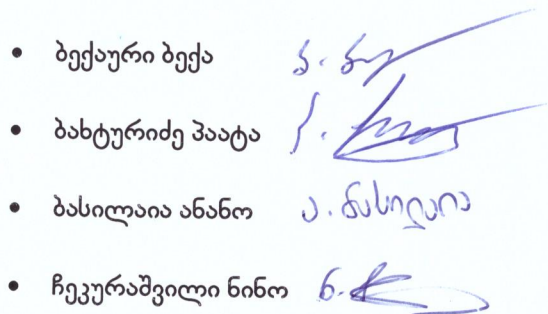 • ბექაური ბექა
• ბახტურიძე პაატა
• ბასილაია ანანო ა. ბასილაია
• ჩეკურაშვილი ნინო ნ.